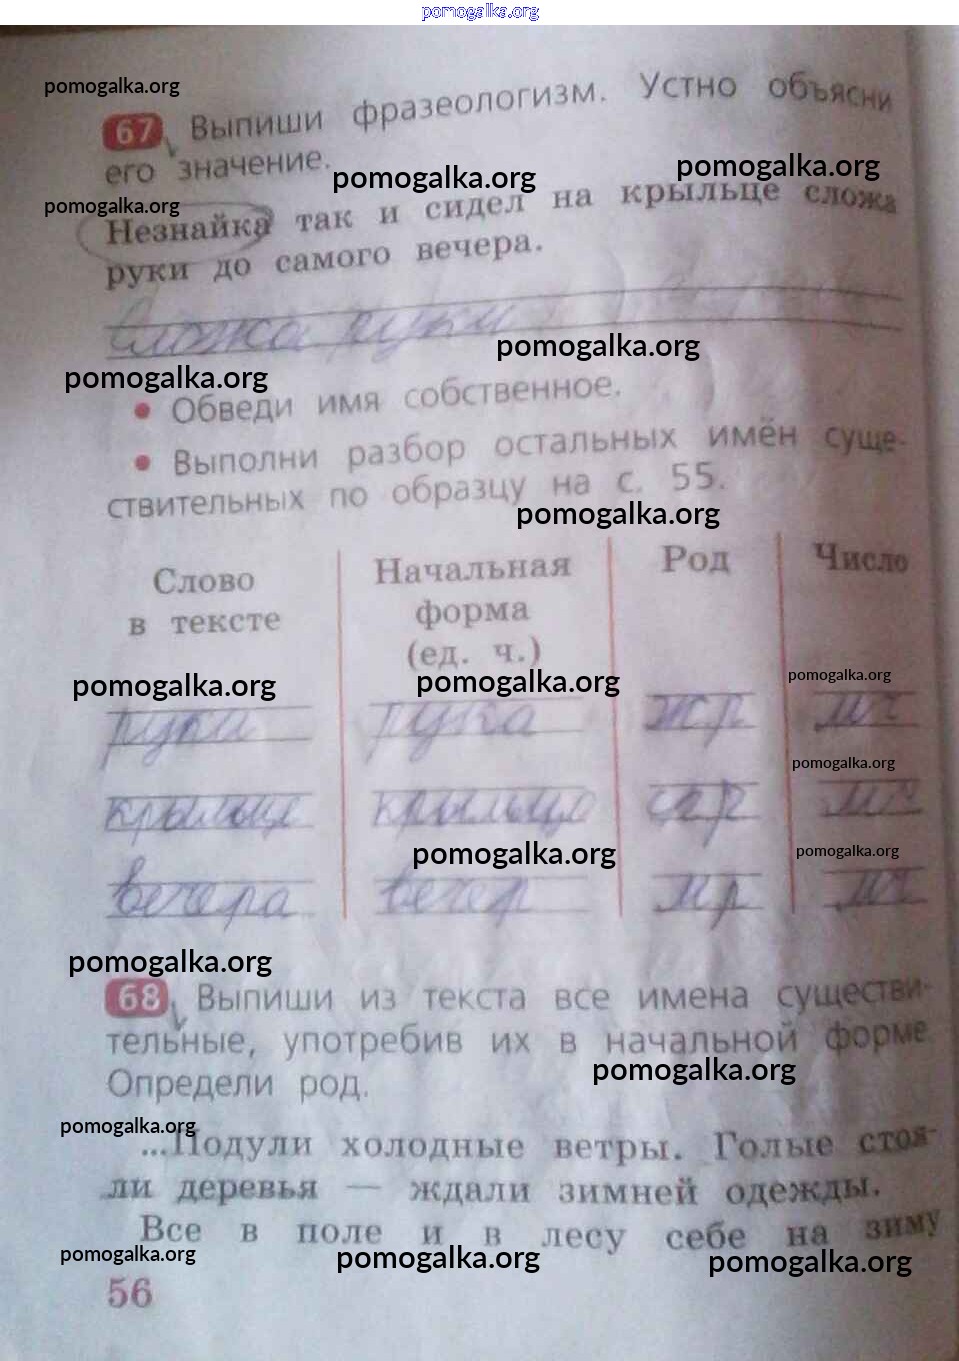 pomogalka.org
pomogalka.org
67 Выпиши фразеологизм. Устно объясни
его значение.
pomogalka.org pomogalka.org
pomogalka.org
Незнайка так и сидел на крыльце сложа
руки до самого вечера.
Сложа руки
pomogalka.org
pomogalka.org
• Обведи имя собственное.
• Выполни разбор остальных имён суще-
ствительных по образцу на с. 55.
pomogalka.org
Слово в тексте Начальная форма (ед. ч.) Род Число
pomogalka.org pomogalka.org pomogalka.org
руки рука жр мч
pomogalka.org
крыльце крыльцо ср
pomogalka.org pomogalka.org
вечера вечер мр мч
pomogalka.org
68 Выпиши из текста все имена существи-
тельные, употребив их в начальной форме.
Определи род.
pomogalka.org
pomogalka.org
...Подули холодные ветры. Голые стоя-
ли деревья — ждали зимней одежды.
Все в поле и в лесу себе на зиму
pomogalka.org pomogalka.org pomogalka.org
56